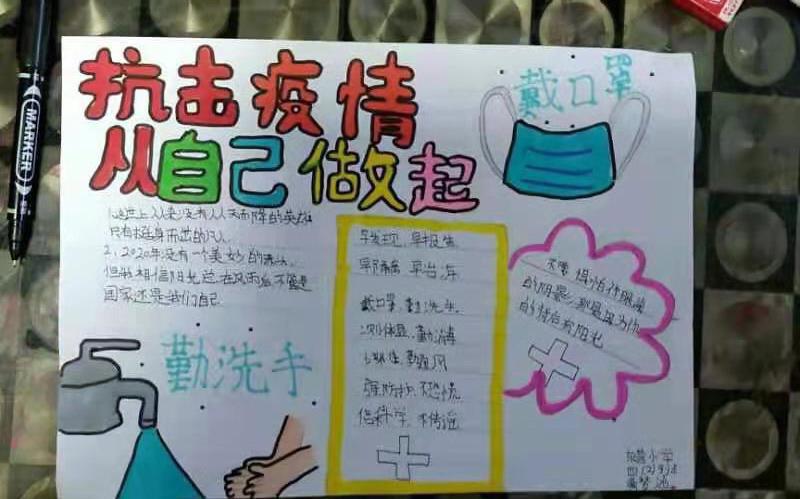 抗击疫情
从自己做起
戴口罩
MARKER
1、世上从来没有从天而降的英雄
只有挺身而出的凡人
2、2020年没有一个美妙的
但我相信阳光总在风雨后不管是
国家还是我们自己
早发现、早报告
早隔离、早治疗
戴口罩、勤洗手
测体温、勤消毒
少聚集、勤通风
强防护、不恐慌
信科学、不传谣
不要惧怕你眼前
的阴影,那是因为你
的背后有阳光
勤洗手
小学